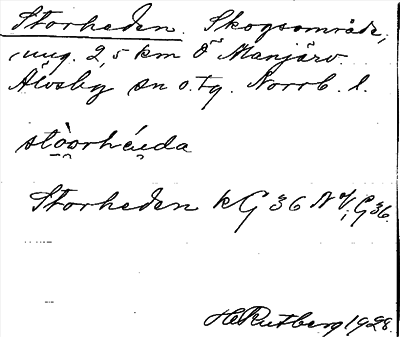 Storheden. Skogsområde,
ung. 2,5 km Ö Manjärv.
Älvsby sn o. tg. Norrb. l.
stòo̯rhéi̯da
Storheden kG 36 NV; G 36.
H. Rutberg 1928.